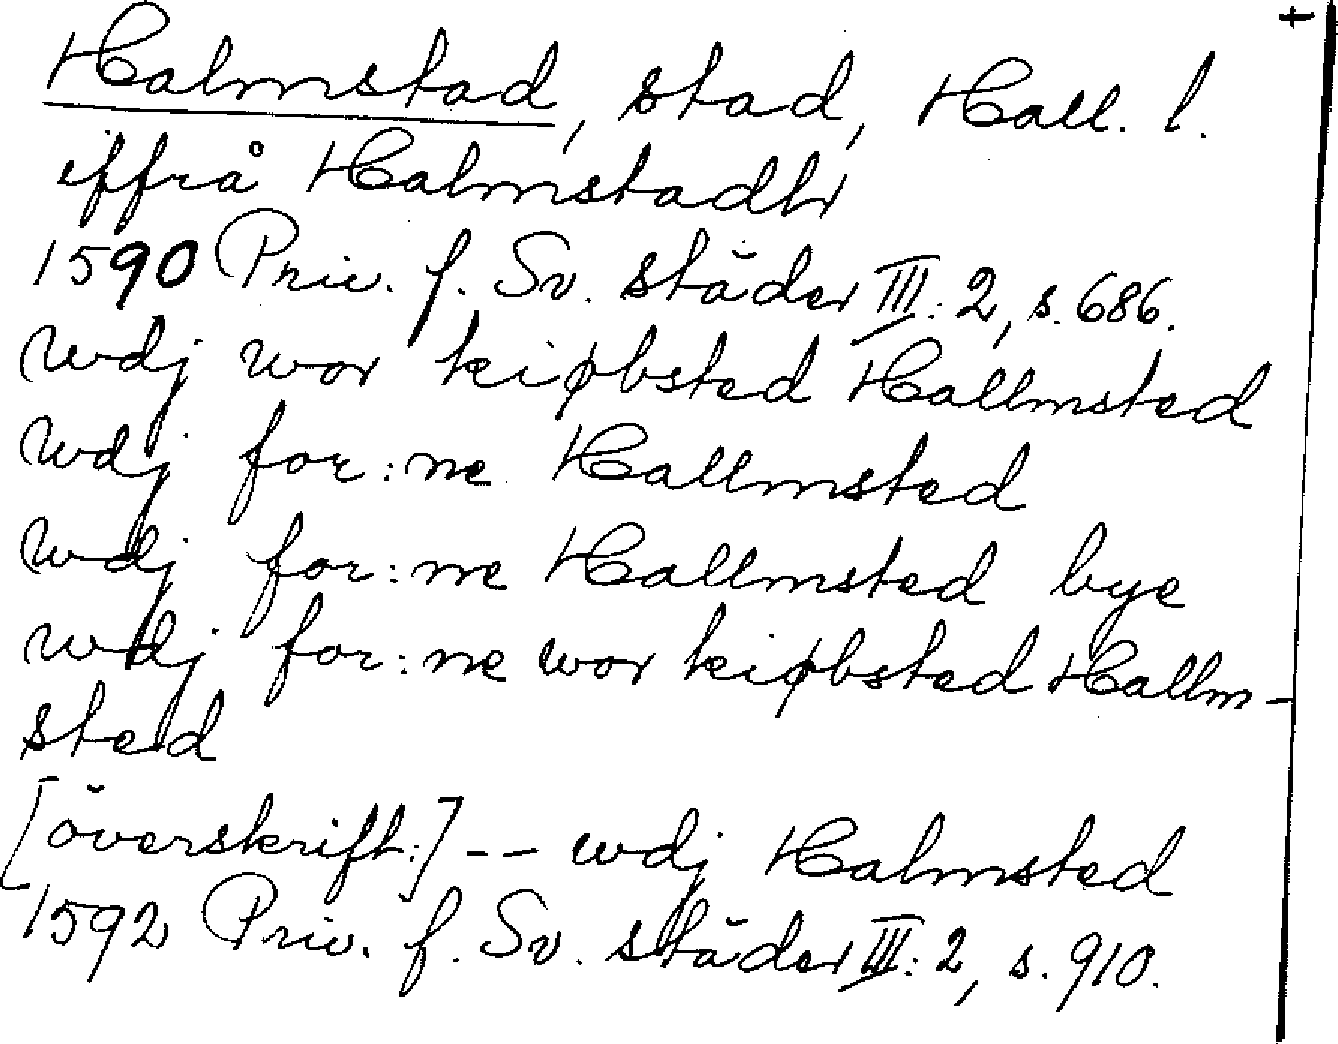 Halmstad, stad, Hall. l.
iffrå Halmstadhr
1590 Priv. f. Sv. städer III:2, s. 686.
wdj wor kiøbsted Hallmsted
wdj for:ne Hallmsted
wdj for:ne Hallmsted bye
wdj for:ne wor kiøbsted Hallm-
sted
[överskrift:] -- wdj Halmsted
1592 Priv. f. Sv. städer III:2, s. 910.